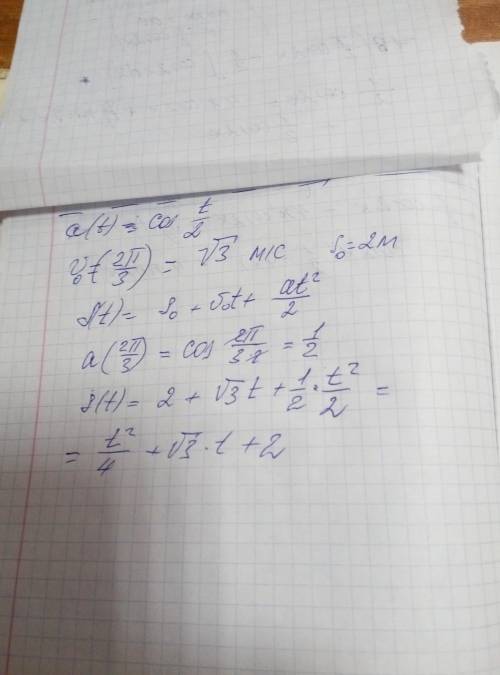 a(t) = cos t/2
V₀t(2π/3) = √3 м/с S₀ = 2м
S(t) = S₀ + v₀t + at²/2
a(2π/3) = cos 2π/3·2 = 1/2
S(t) = 2 + √3t + 1/2 · t²/2 =
= t²/4 + √3 · t + 2